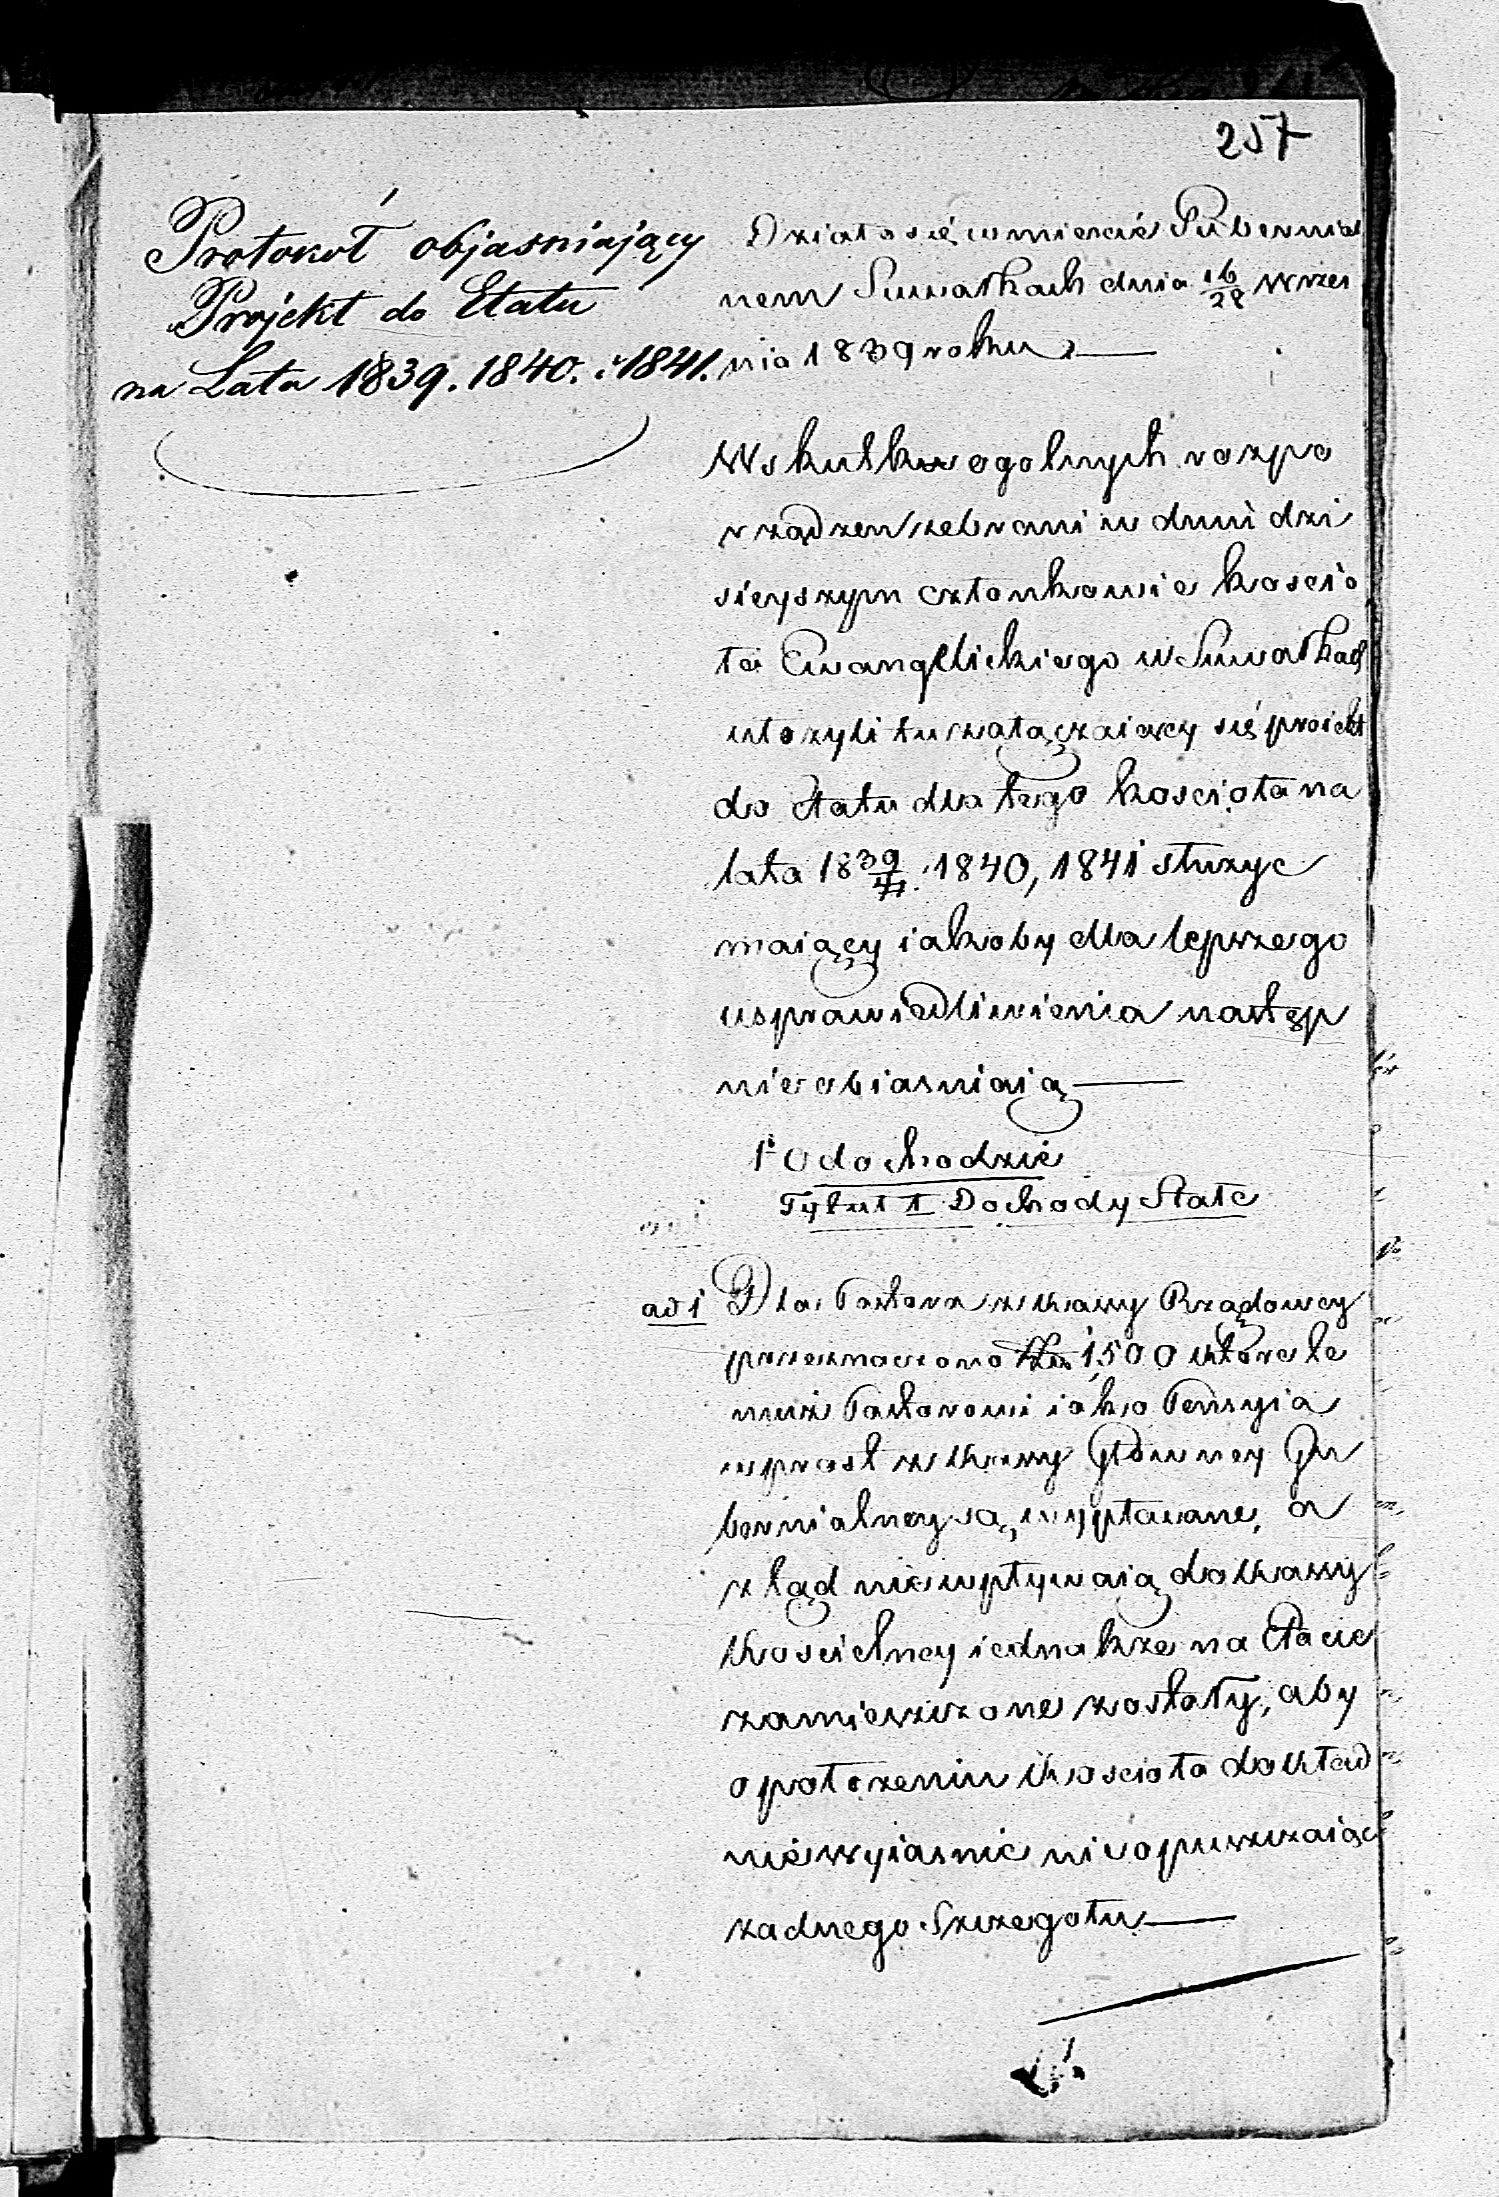 257
Protokoł objasniający
Projekt do Etatu
na Lata 1839. 1840. i 1841.
Działo się w mieście Gubernial
nem Suwałkach dnia 16/28 Wrześ
nia 1839 roku
W skutku ogolnych rozpo
rządzen zebrani w dniu dzi
sieyszym członkowie koscio
ła Ewangelickiego w Suwałkach
ułozyli tu załączaiący się proiekt
do Etatu dla tego kosciola na
lata 1839/41. 1840, 1841 słuzyc
maiący iakoby dla lepszego
usprawiedliwienia następ
nie obiasniaią
1° O dochodzie
Tytuł I Dochody Stałe
ad 1 Dla Pastora z Kassy Rządowey
przeznaczono 1500 które te
muz Pastorowi iako Pensyia
wprost z Kassy Głowney Gu
bernialney są wypłacane, a
ztąd nie wpływaią do Kassy
Koscielney iednakze na Etacie
zamieszczone zostały, aby
o połozeniu Kosciola dokład
nie wyiasnic nie opuszczaiąc
zadnego Szczegołu